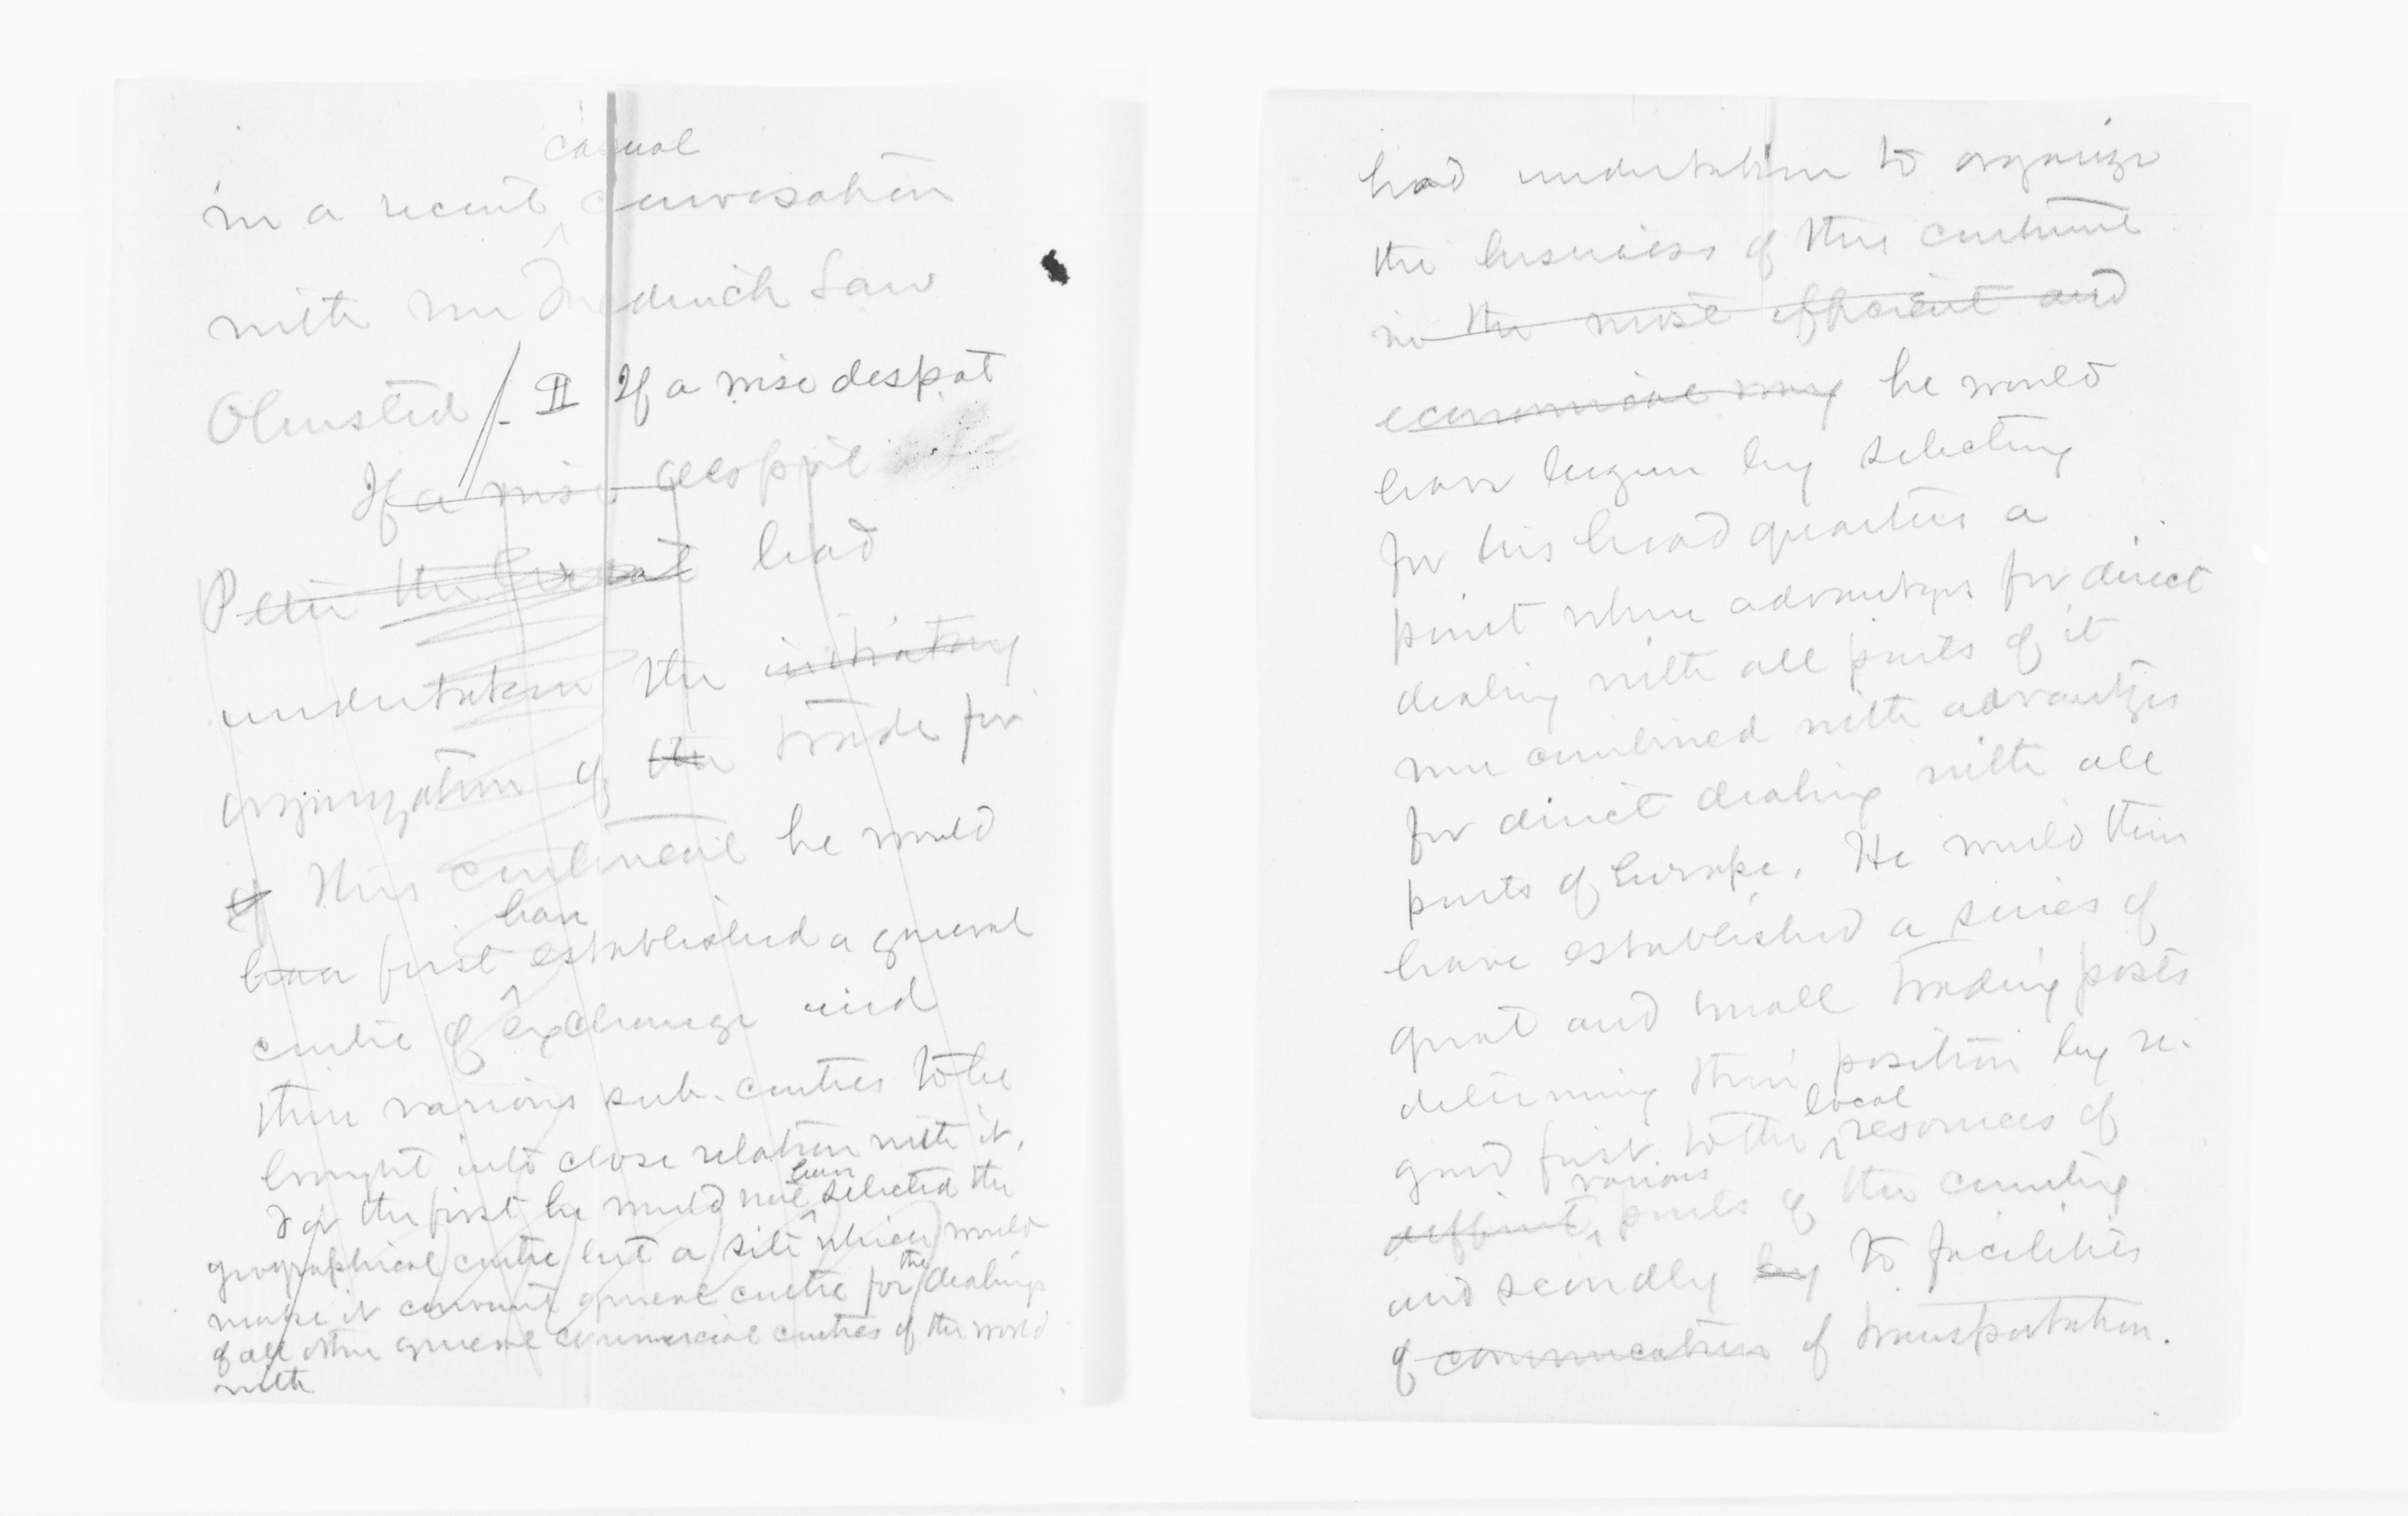 casual
in a recent conversation
with Mr Fredrich Law
Olmsted/- II If a wise despot
If a wise despot
Peter the Great had
undertaken the initiatory
organization of the trade for
of this continent he would
have
have first established a general
centre of exchange and
then various sub-centres to be
brought into close relation with it.
have
For the first he would not selected the
geographical centre but a site which would
the
make it convenient general centre for dealings
of all other general commercial centres of the world
with
had undertaken to organize
the business of this continent
in the most efficient and
economical way he would
have begun by selecting
for his head quarters a
point where advantages for direct
dealing with all parts of it
were combined with advantages
for direct dealing with all
parts of Europe. He would then
have established a series of
great and small trading posts
determining their position by re-
local
gard first to the resources of
various
different parts of the country
and secondly by to facilities
of communication of transportation.